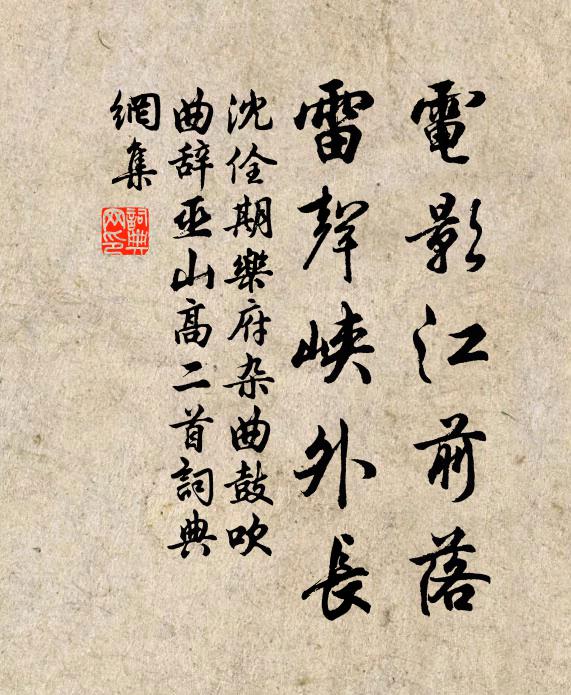 電影江前落
雷聲峽外長
沈佺期樂府杂曲鼓吹
曲辞巫山高二首詞典
網集
詞典
网印